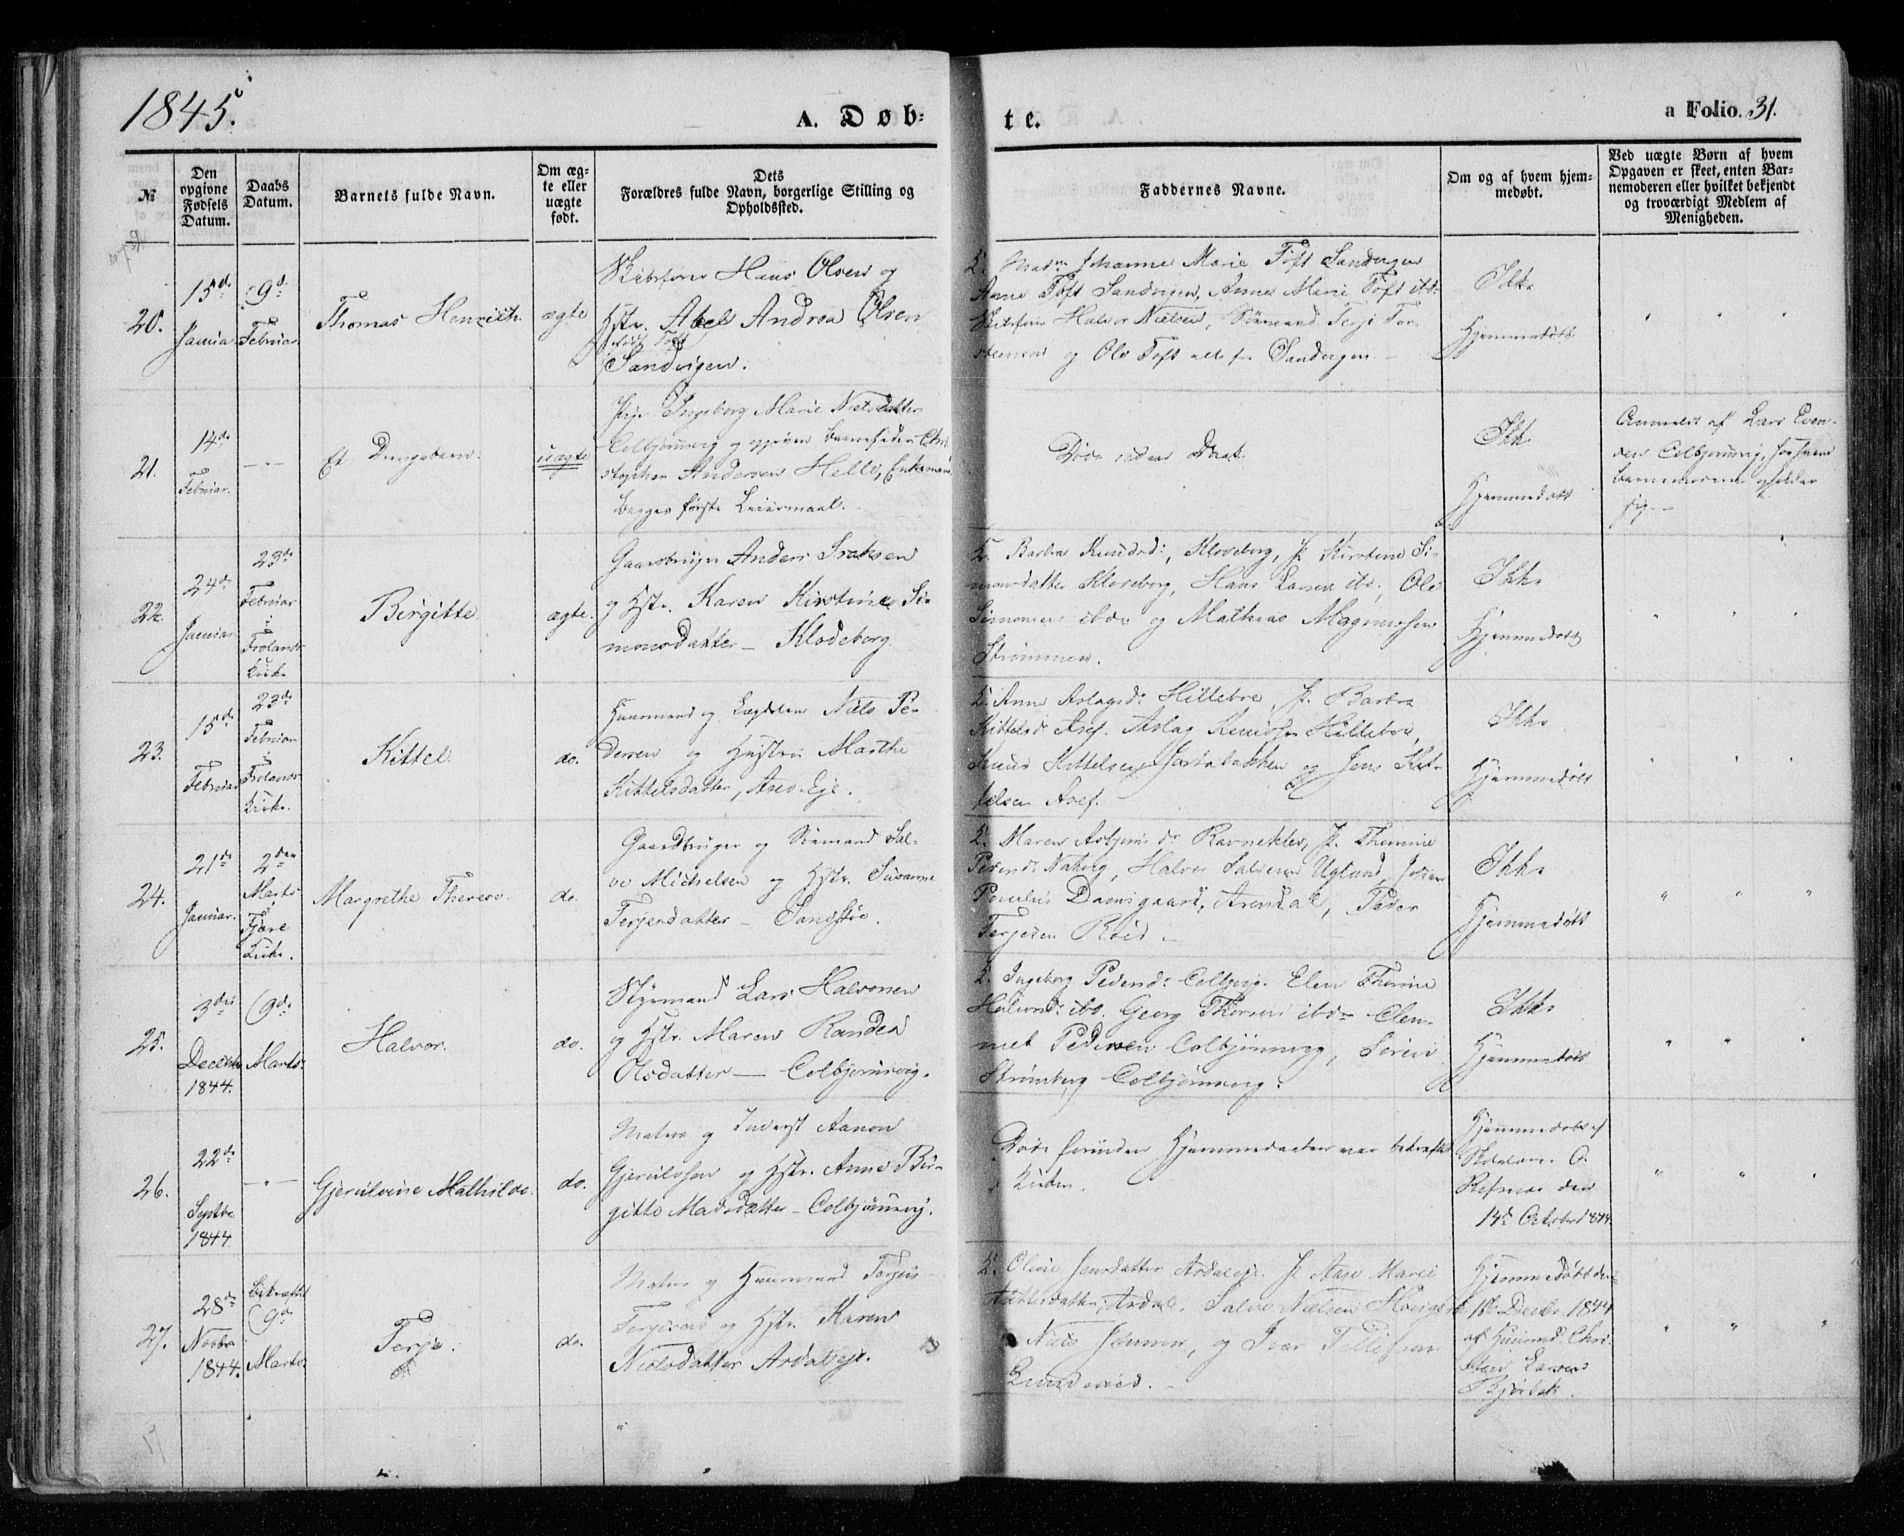 1845.
A. Døb-
te.
a Folio. 31.
№
Den opgivne Fødsels Datum.
Daabs Datum.
Barnets fulde Navn.
Om ægte eller uægte født.
Dets Forældres fulde Navn, borgerlige Stilling og Opholdssted.
Faddernes Navne.
Om og af hvem hjemmedøbt.
Ved uægte Børn af hvem Opgaven er skeet, enten Barnemoderen eller hvilket bekjendt og troværdigt Medlem af Menigheden.
20.
15de
Januar
9de
Februar
Thomas Henrich
ægte
Hans Olsen og
Hstr. Abel Andrea Olsen
født Toft
Sandvigen.
Johanne Marie Toft Sandvigen
Anne Toft Sandvigen, Anne Marie Toft ibd.
Halvor Nielsen, Sømand Terje Ter-
og Ole Toft alle fra Sandvigen
Ikke
Hjemmedøbt
21.
14de
Februar.
Et Drengebarn.
uægte
Pige Ingeborg Marie Nielsdatter
Colbjørnsvig og opgiven Barnefader Chri-
stopher Andersen Helle, Enkemand
begges første Leiermaal.
Døde uden Daab.
Ikke
Hjemmedøbt
Anmeldt af Lars Even-
sen Colbjørnsvig, hos hvem
Barnemoderen opholder
sig.
22.
24de
Januar.
23de
Februar
i
Frolands
Kirke
Birgitte
ægte.
Gaardbruger Anders
og Hstr. Karen Kirstine Si-
monsdatter — Klodeborg.
Barbra Knudsd: Kloveborg, P. Kirstine Si-
monsdatter Kloveborg, Hans Larsen ibd., Ole
Simonsen ibdm og Mathias Magnussen
Strømmen.
Ikke
Hjemmedøbt
23.
15de
Februar
23de
Februar
Frolands
Kirke.
Kittel.
do.
Huusmand og Niels Pe-
dersen og Hustru Marthe
Kittelsdatter, Eje.
Anne Aslagsd: Hilleboe, P. Barbra
Kittelsd Asef. Aslag Knudsen Hilleboe,
Knud Kittelsen og Jens Kit-
telsen Asef.
Ikke
Hjemmedøbt
24.
21de
Januar.
2den
Marts
Kirke.
Margrethe Therese.
do.
Gaardbruger og Sømand Sal-
ve Michelsen og Hstr. Susanne
Terjesdatter — Sandstøe.
Maren Asbjørnsdr Ravneklev, P. Thomine
Naberg, Halvor Salvesen Uglund,
Damsgaard, Arendal, Peder
Terjesen Roed.
Ikke
Hjemmedøbt
25.
3die
Decebr
1844.
9de
Marts.
Halvor.
do.
Styrmand Lars Halvorsen
og Hstr. Maren Randea
Olsdatter — Colbjørnsvig.
Ingeborg Pedersd: Colbjsvig. Elen Thomine
Halvorsd: ibd. Georg Thorsen ibdm Clem-
met Pedersen Colbjørnsvig, Søren
Strømberg Colbjørnsvig.
Ikke
Hjemmedøbt
26.
22de
Septbr
1844.
Gjerulvine Mathilde.
do.
Matros og Inderst Aanon
Gjerulvsen og Hstr. Anne Bir-
gitte Madsdatter — Colbjørnsvig.
Døde forinden Hjemmedaaben var bekræftet
i Kirken.
Hjemmedøbt af
Skolelærer O.
Refsnes den
14de October 1844.
27.
28de
Novbr
1844.
Bekræftet
9de
Marts
Terje.
do.
Matros og Huusmand Terje
Terjesen og Hstr. Karen
Nielsdatter Ardalseje.
Oline Jensdatter Ardalseje. P. Aase Marie
Ardal. Salve Nielsen
Niels Johnsen, og Ivar Tellefsen
Hjemmedøbt den
1ste Decbr. 1844
af Huusmd. Chri-
sten Larsen